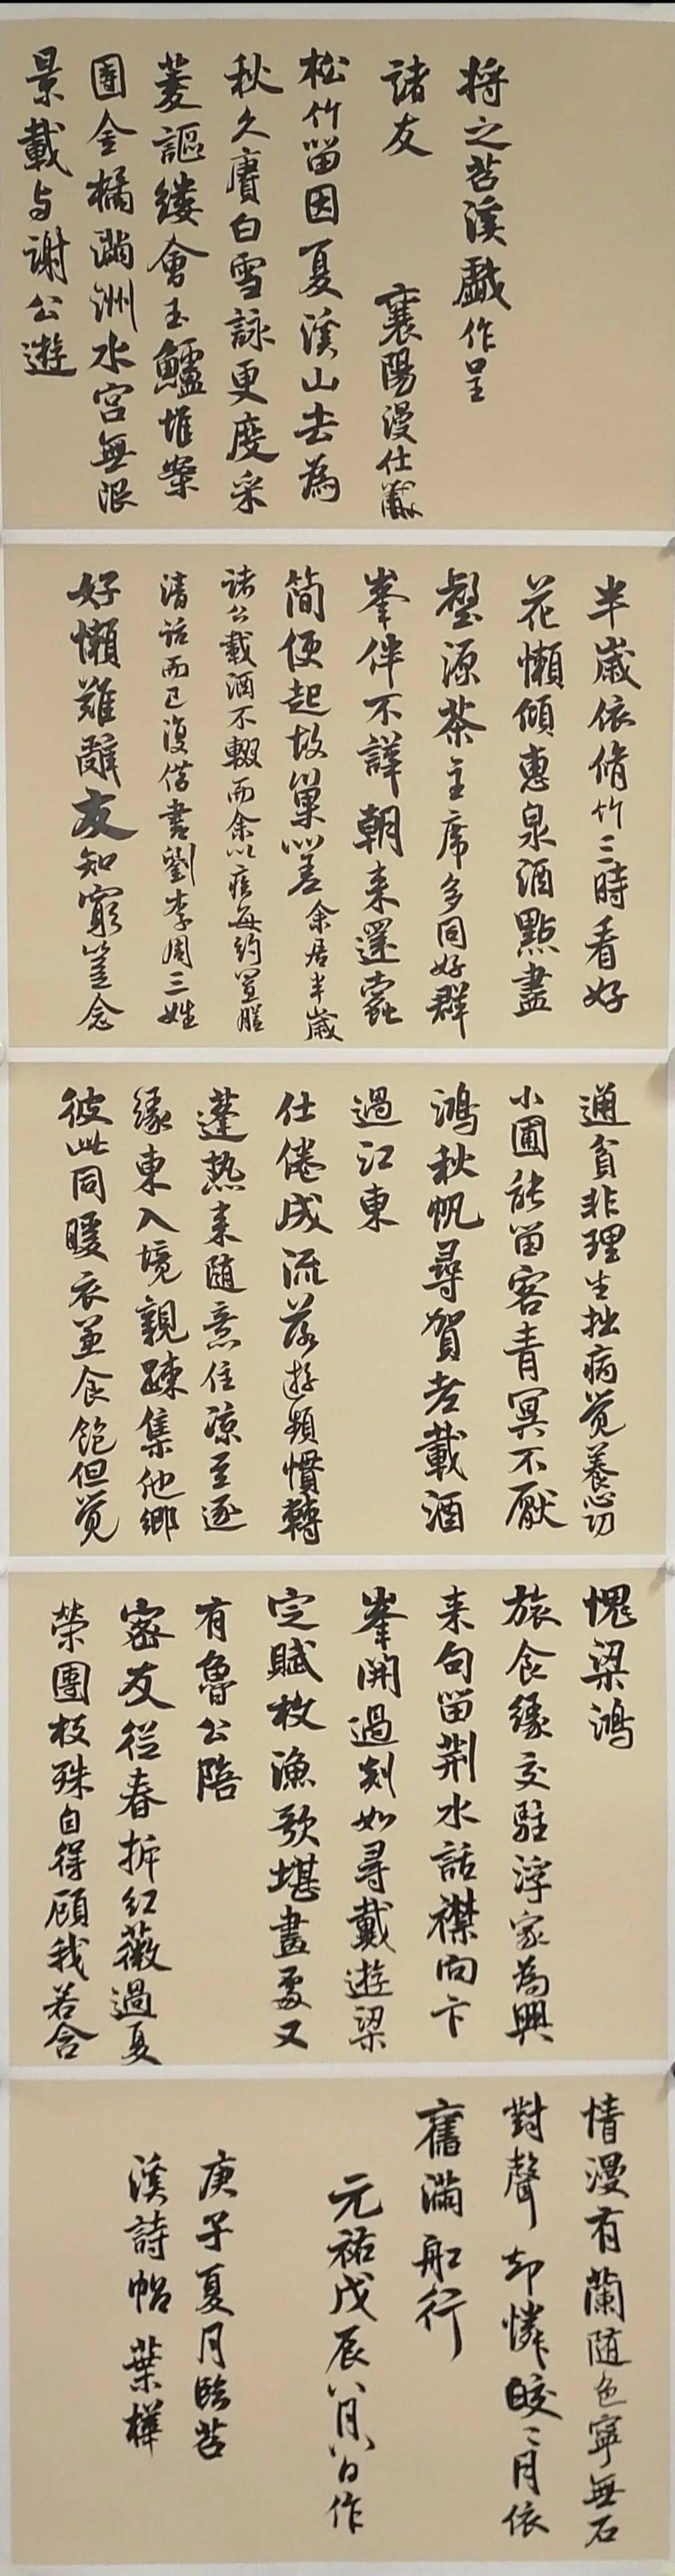 将之苕溪戯作呈
諸友
襄陽漫仕黻
松竹留因夏溪山去為
秋久賡白雪詠更度采
菱謳縷會玉鱸堆案
團金橘滿洲水宫無限
景載与謝公遊
半歲依脩竹三時看好
花懶傾惠泉酒點盡
壑源茶主席多同好群
峯伴不譁朝来還蠹
簡便起故巢嗟余居半歲
諸公載酒不輟而余以疾每約置膳
清話而已復借書劉李周三姓
好懶難辭友知窮豈念
通貧非理生拙病觉養心功
小圃能留客青冥不厭
鴻秋帆尋賀老載酒
過江東
仕倦成流落遊頻慣轉
蓬热来随意住凉至逐
緣東入境親踈集他鄉
彼此同暖衣並食飽但觉
愧梁鴻
旅食緣交駐浮家為興
来句留荆水話襟向卞
峯開過剡如尋戴遊梁
定賦枚漁歌堪畫處又
有魯公陪
密友從春拆紅薇過夏
榮團枝殊自得顾我若含
情漫有蘭随色寧無石
對聲却憐皎〻月依
舊滿舡行
元祐戊辰八月八日作
庚子夏月臨苕
溪詩帖 葉樺